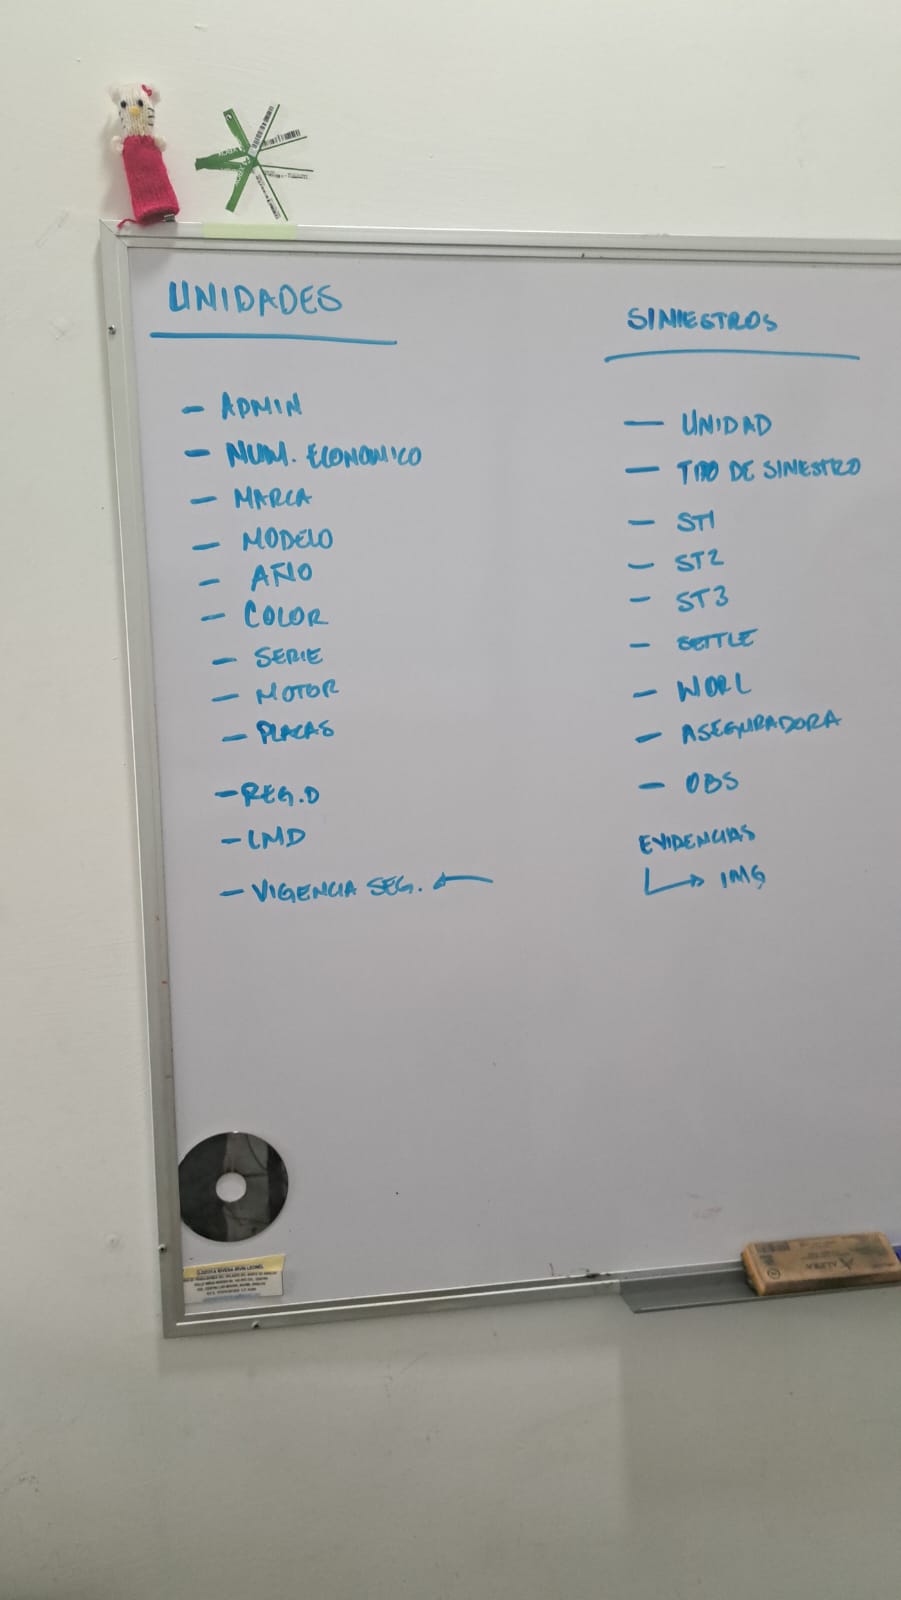 UNIDADES
- ADMIN
- NUM. ECONOMICO
- MARCA
- MODELO
- AÑO
- COLOR
- SERIE
- MOTOR
- PLACAS
- REG.D
- LMD
- VIGENCIA SEG. ←
SINIESTROS
- UNIDAD
- TIPO DE SINIESTRO
- ST1
- ST2
- ST3
- SETTLE
- WORL
- ASEGURADORA
- OBS
EVIDENCIAS
↳ IMG